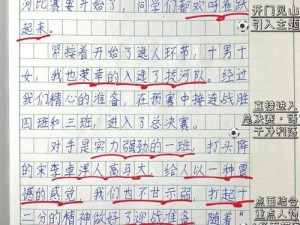 河比赛开始了，同学们都欢呼雀跃
起来。
紧接着开始了选人环节，十男十
女，我也荣幸的入选了拔河队。经过
我们精心的准备，在预赛中接连战胜
四班和三班，进入了总决赛。
对手是实力强劲的一班，打头阵
的宋李卓洋人高马大，给人以一种震
憾的感觉，我们也不甘示弱，打起十
二分的精神做好了迎战准备。随着
开门见山
引入主题
直接进入
总决赛，省
于冲刺落
点面结合
重点人物